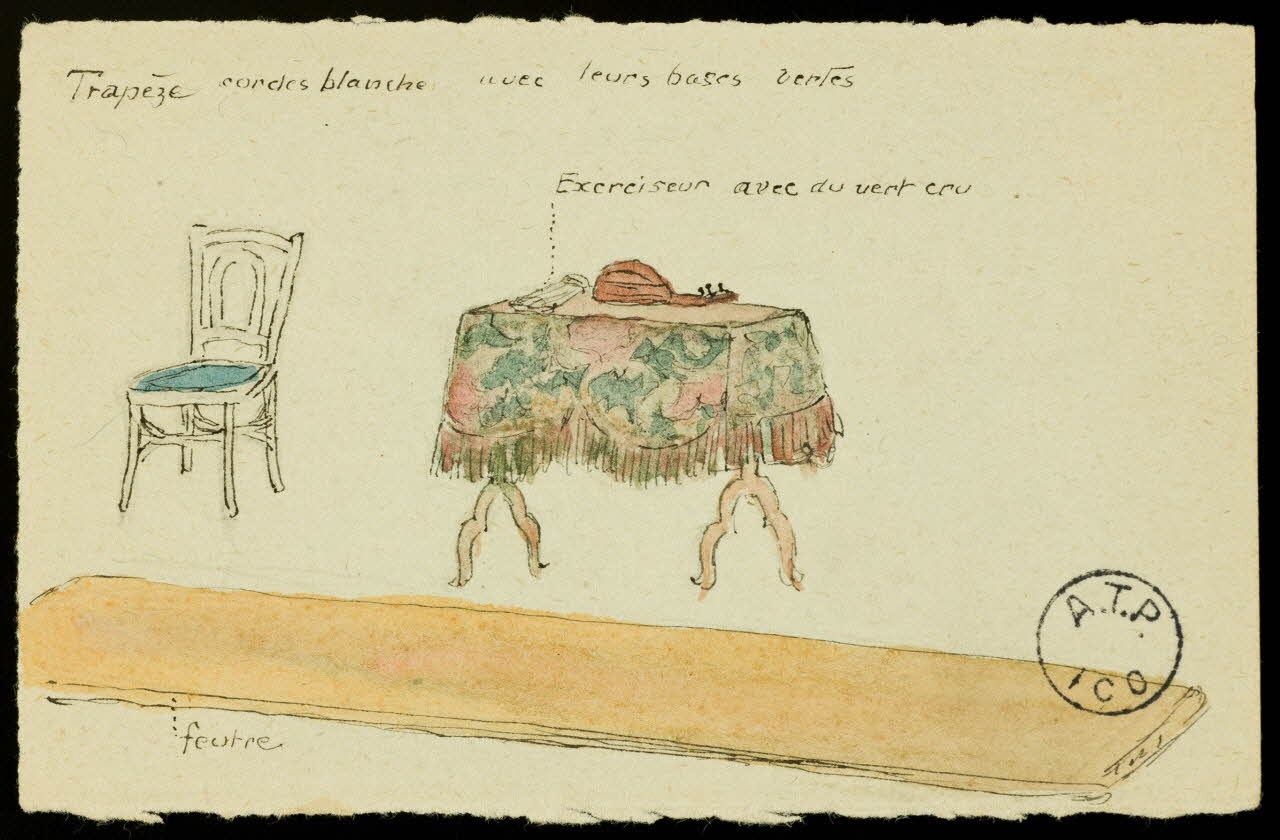 Trapèze cordes blanche avec leurs bases vertes
Exerciseur avec du vert cru
A.T.P.
ICO
feutre